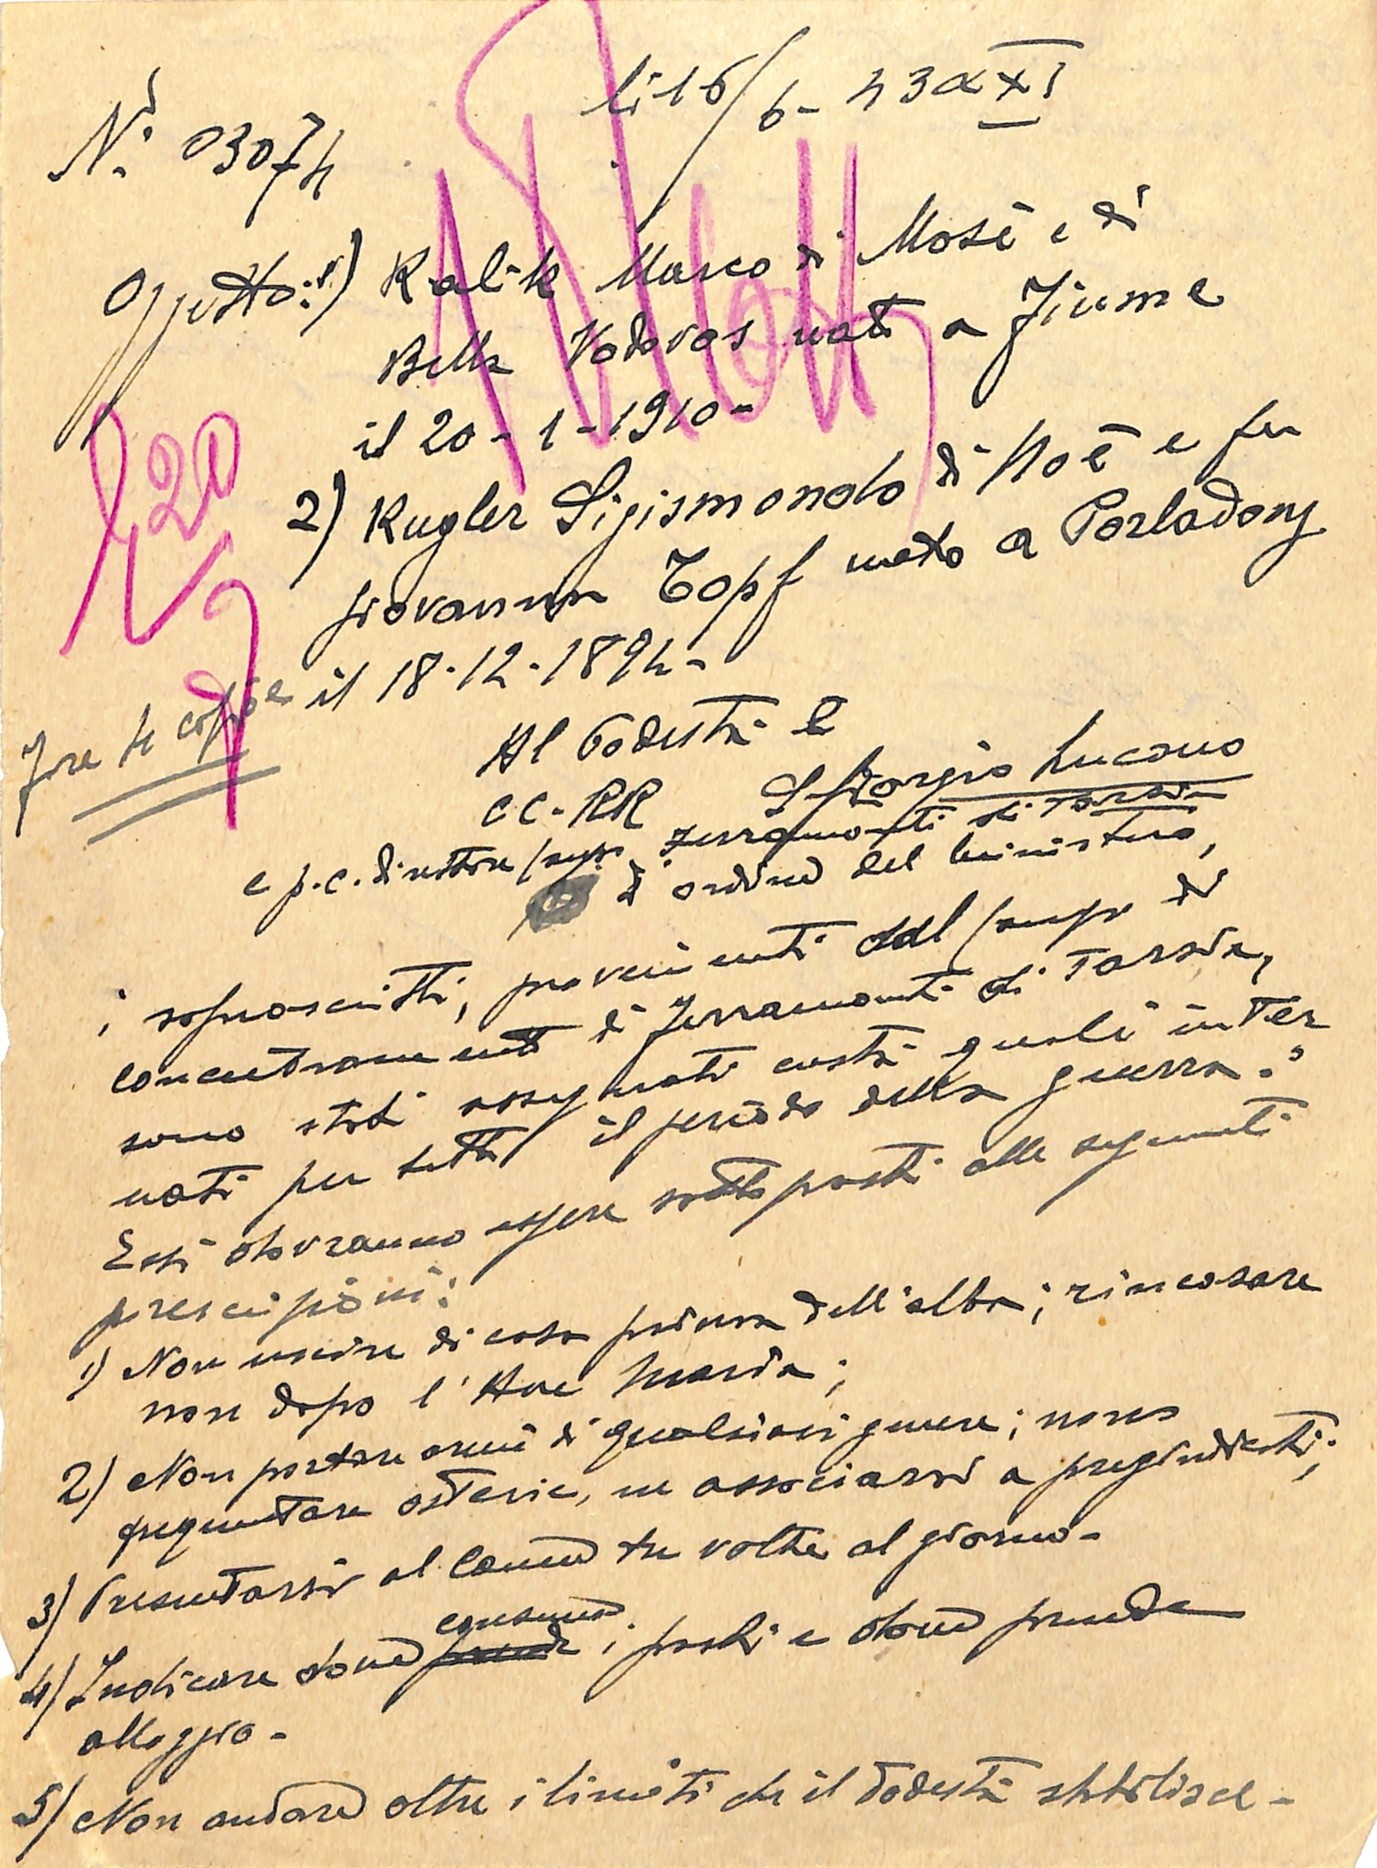 li 16/6-43 a XXI
N. 03074
Oggetto: 1) Kalik Marco di Mosè e di
Bella Vodovos nato a Fiume
il 20-1-1910-
2) Kugler Sigismondo di Noè e fu
Giovanna Topf nato a
il 18.12.1894-
Fare 4 copie
Al Podestà e
CC.RR S Giorgio Lucano
e p.c. direttore Campo Ferramonti di Tarsia
d'ordine del Ministero,
i soprascritti, provenienti dal Campo di
concentramento di Ferramonti di Tarsia,
sono stati assegnati costà quali inter
nati per tutto il periodo della guerra.
Essi dovranno essere sottoposti alle seguenti
prescrizioni:
1) Non uscire di casa prima dell'alba; rincasare
non dopo l'Ave Maria;
2) Non portare armi di qualsiasi genere; non
frequentare osterie, ne associarsi a pregiudicati;
3) Presentarsi al Comune tre volte al giorno-
consuma
4) Indicare dove prende i pasti e dove prende
alloggio-
5) Non andare oltre i limiti che il Podestà stabilisce-